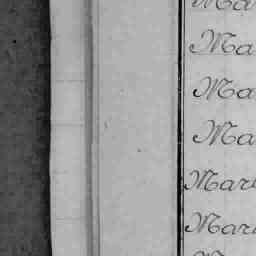 Ma
Ma
Ma
Ma
Mar
Mar